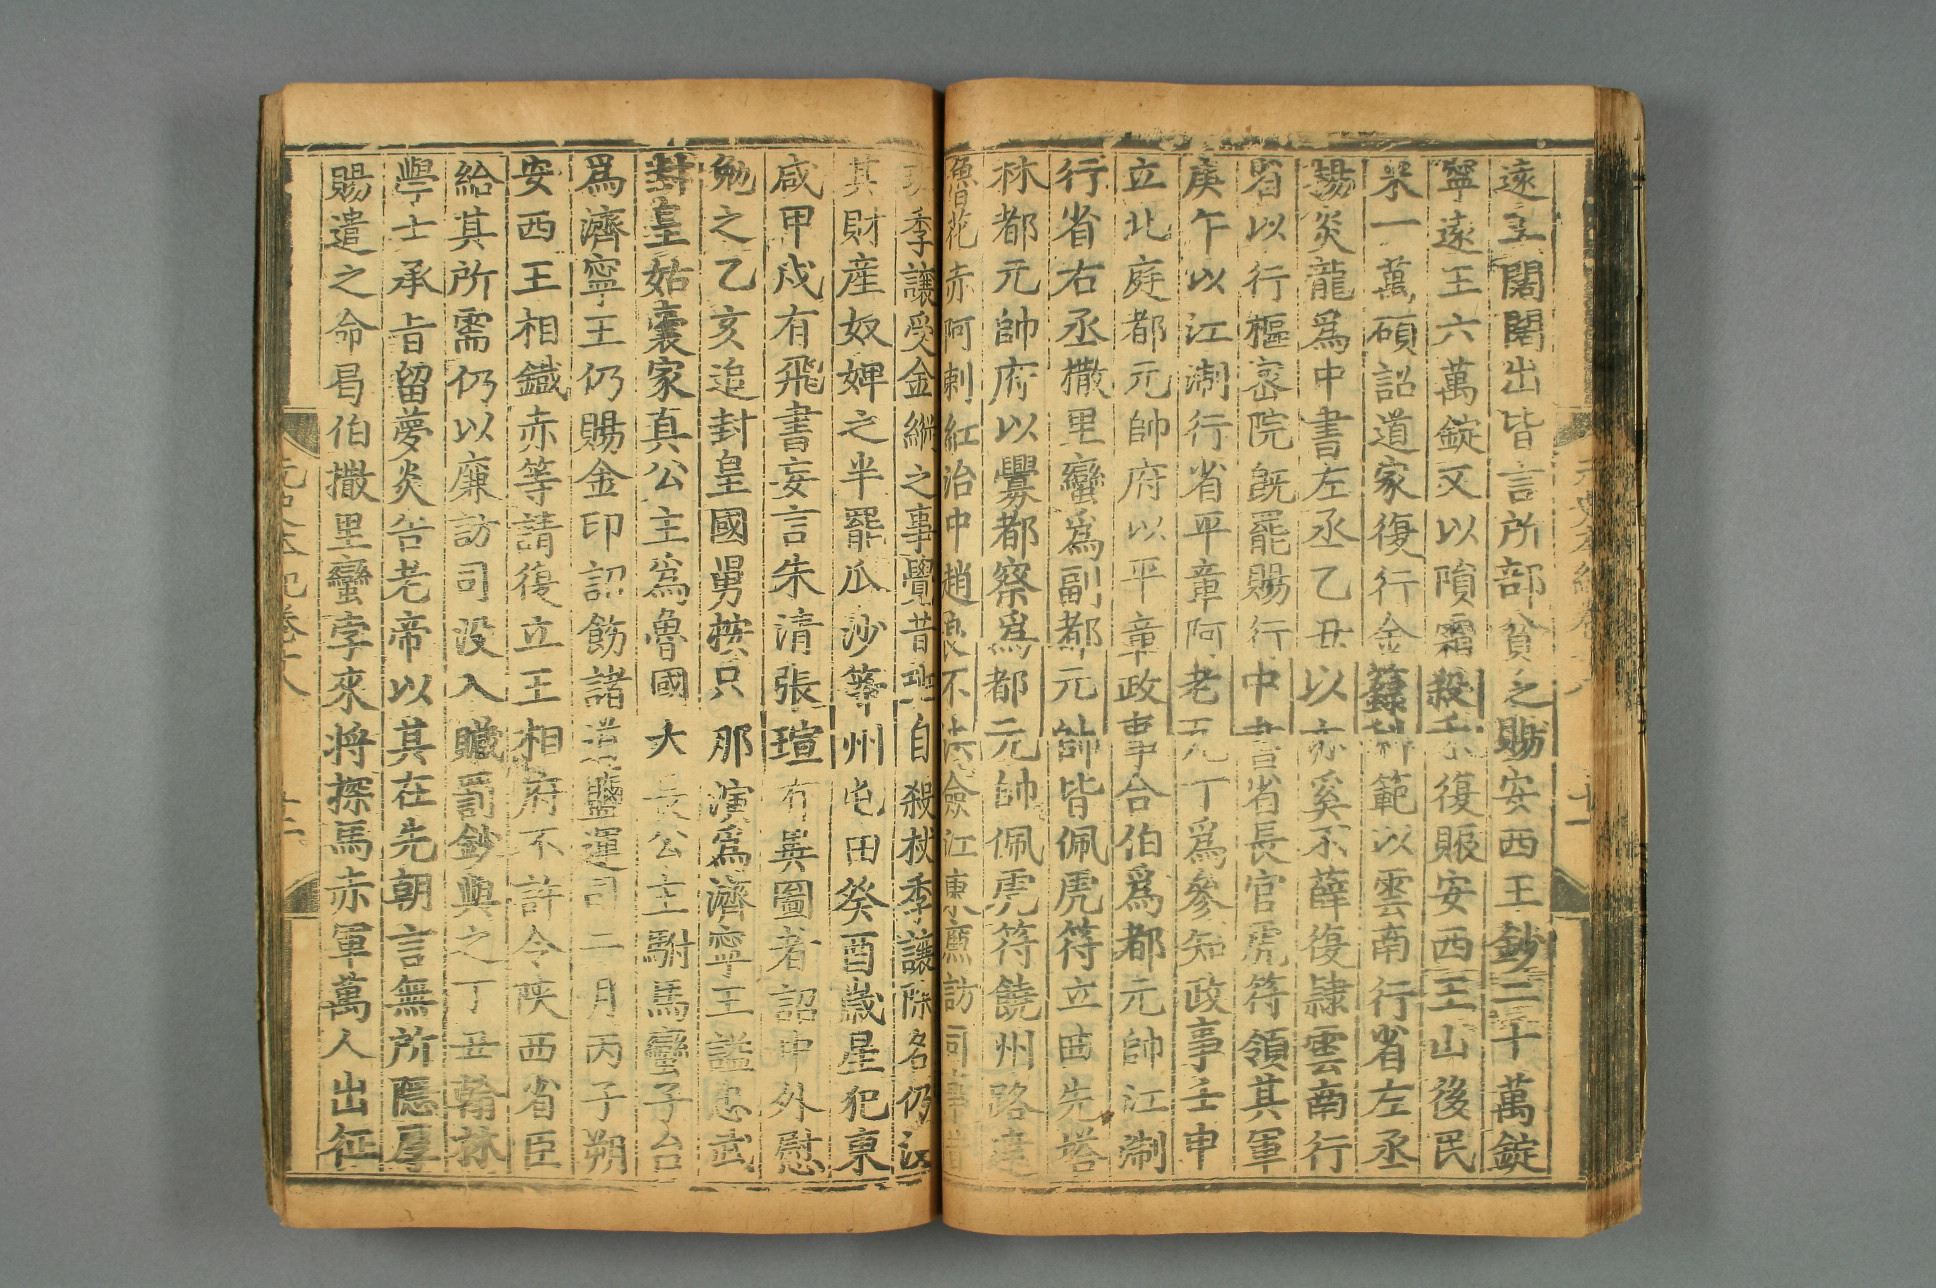 元史本紀卷十八
十一
遠王闊闊出皆言所部貧乏賜安西王鈔二十萬錠
寧遠王六萬錠又以隕霜殺禾復賑安西王山後民
米一萬碩詔道家復行金籙科範以雲南行省左丞
楊炎龍爲中書左丞乙丑以亦奚不薛復隷雲南行
省以行樞密院旣罷賜行中書省長官虎符領其軍
庚午以江淛行省平章阿老瓦丁爲參知政事壬申
立北庭都元帥府以平章政事合伯爲都元帥江淛
行省右丞撒里蠻爲副都元帥皆佩虎符立曲先塔
林都元帥府以釁都察爲都元帥佩虎符饒州路達
魯花赤阿剌紅治中趙良不法僉江東廉訪司事昔
班季讓受金縱之事覺昔班自殺杖季讓除名仍沒
其財產奴婢之半罷瓜沙等州屯田癸酉歲星犯東
咸甲戌有飛書妄言朱清張瑄有異圖者詔中外慰
勉之乙亥追封皇國舅按只那演爲濟寧王謚忠武
封皇姑囊家真公主爲魯國大長公主駙馬蠻子台
爲濟寧王仍賜金印詔飭諸道鹽運司二月丙子朔
安西王相鐵赤等請復立王相府不許令陝西省臣
給其所需仍以廉訪司没入贓罰鈔與之丁丑翰林
學士承旨留夢炎告老帝以其在先朝言無所隱厚
賜遣之命曷伯撒里蠻孛來將探馬赤軍萬人出征
元史本紀卷十八
十二